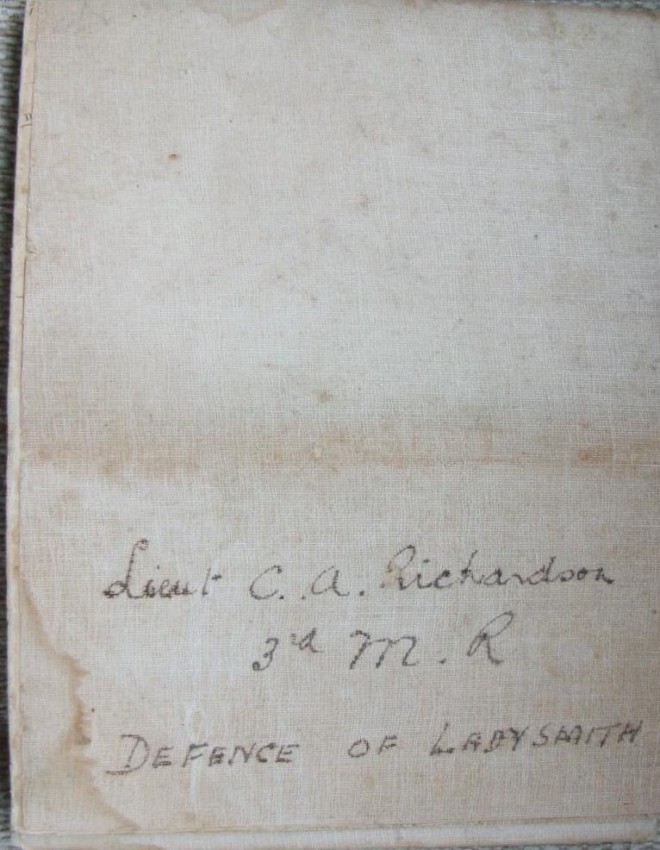 Lieut C. A. Richardson
3rd M. R
DEFENCE OF LADYSMITH